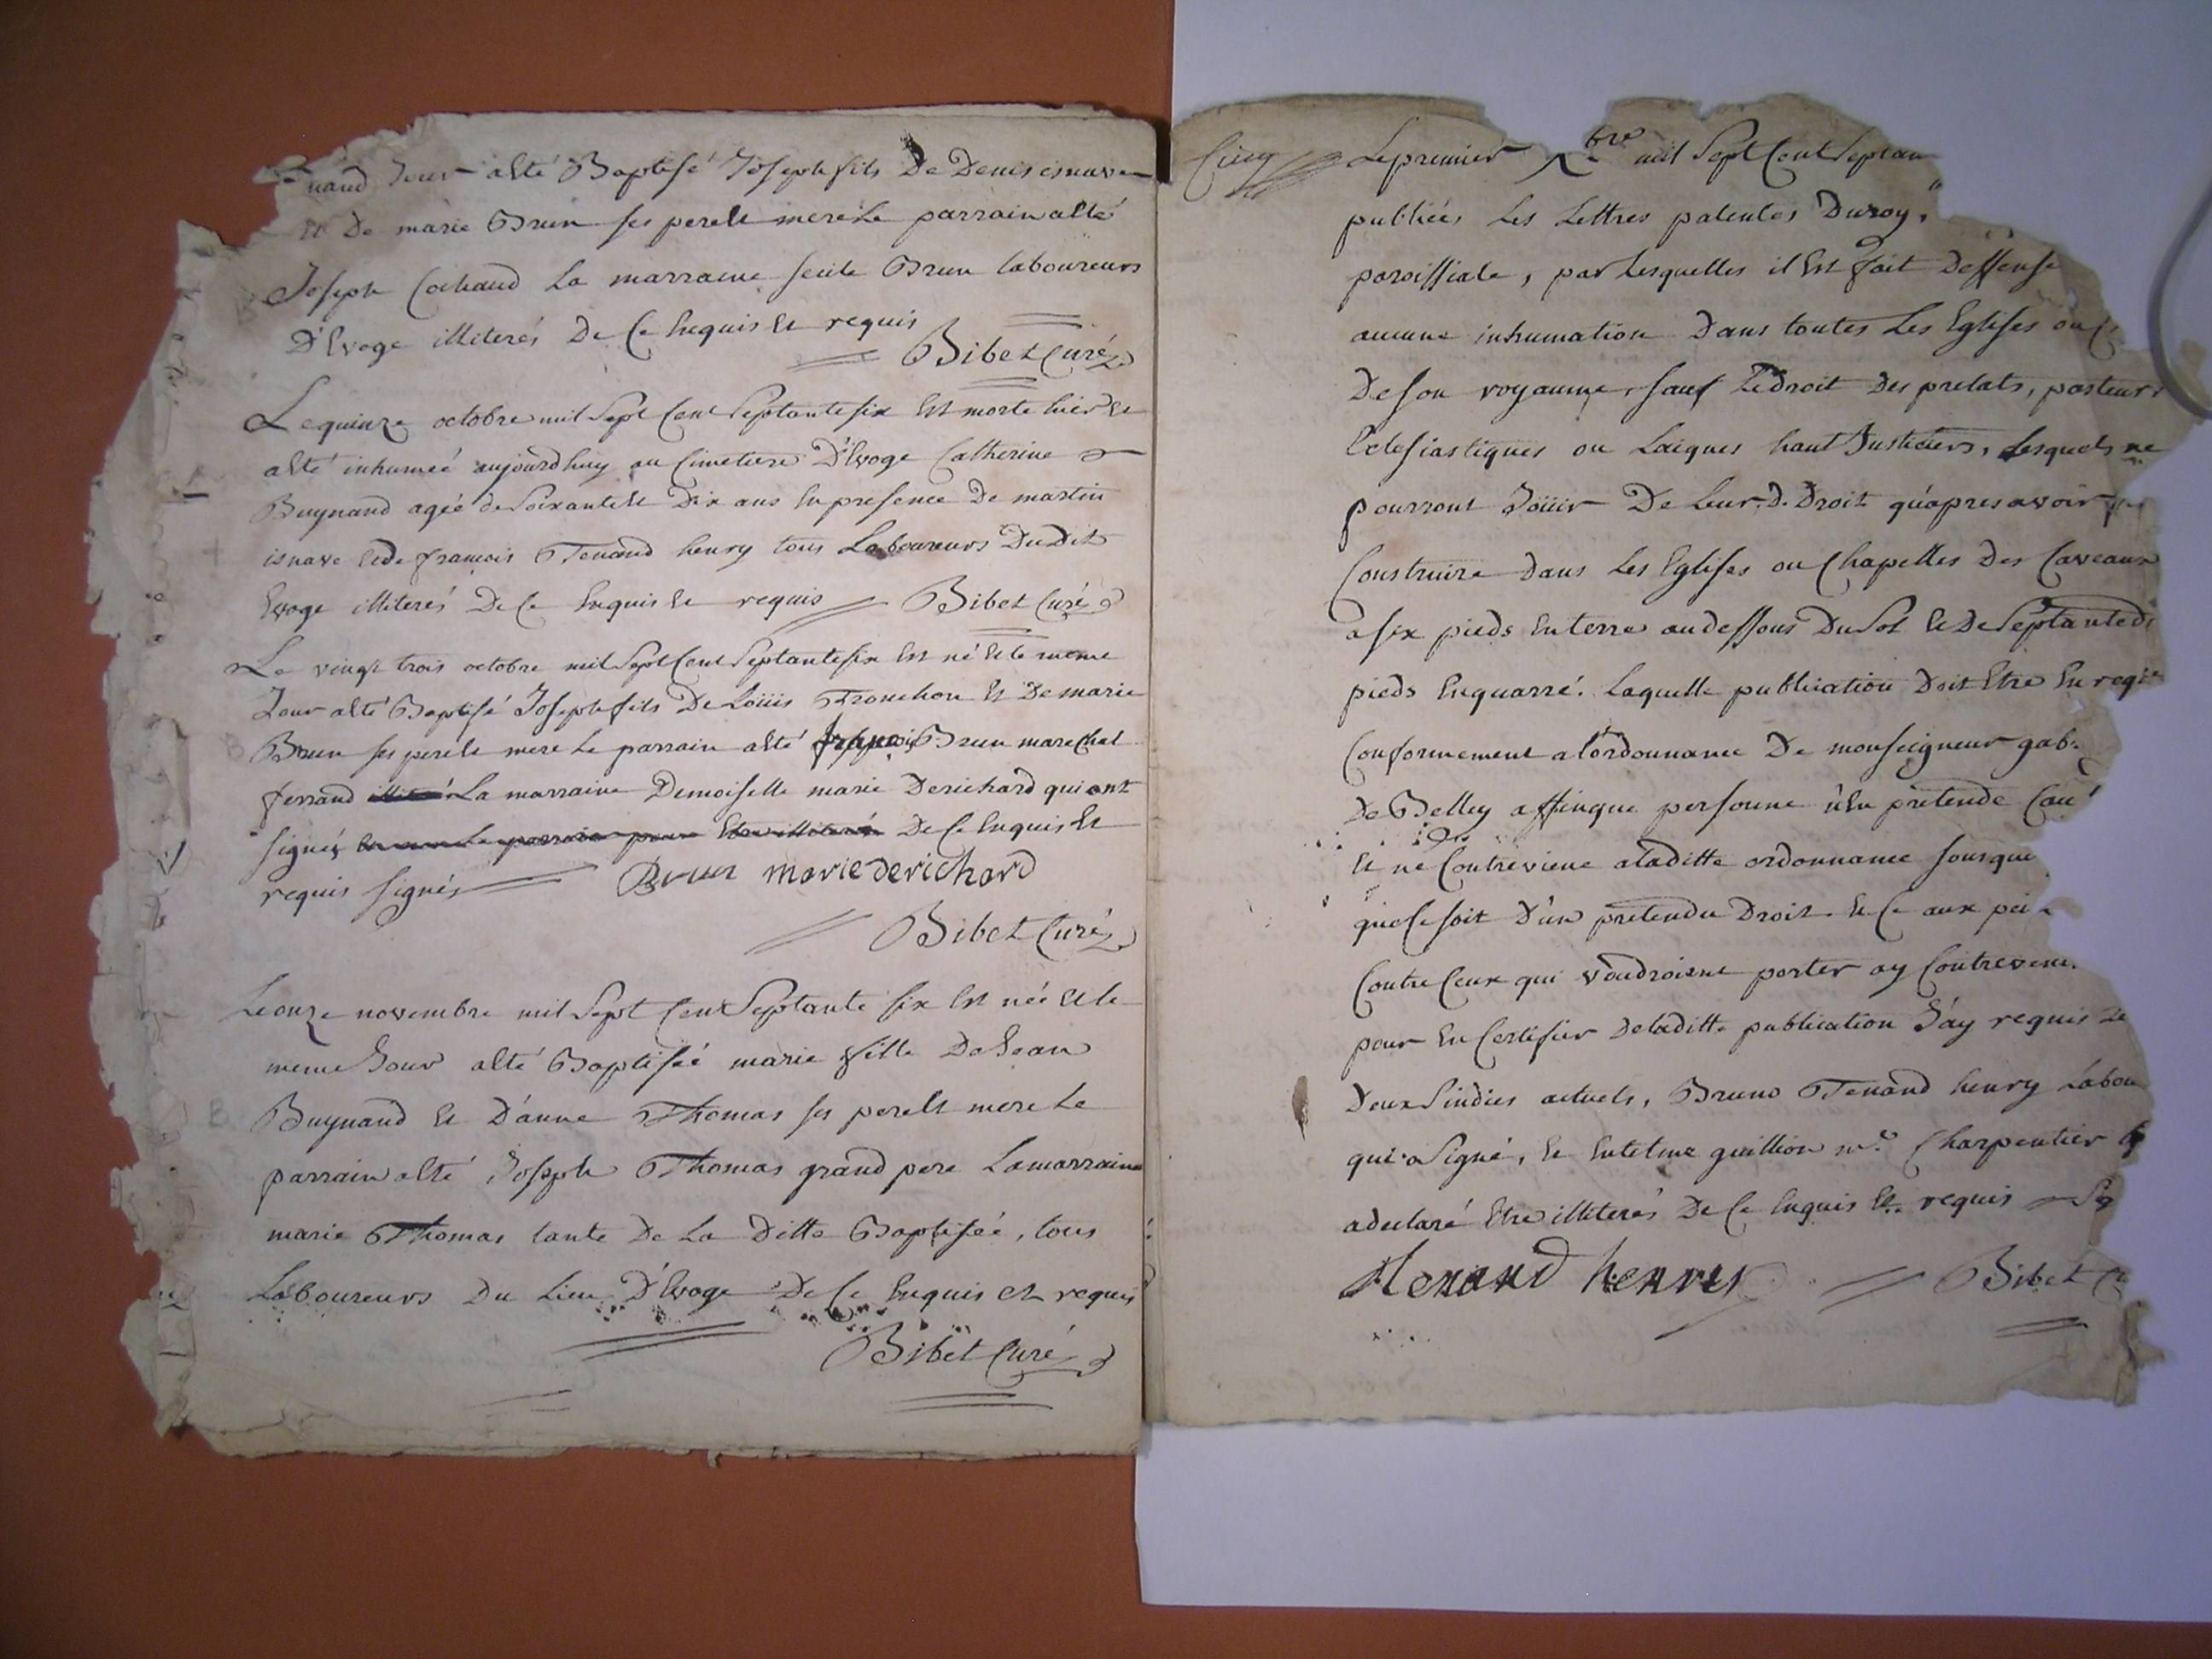 nand Jour a été Baptisé Joseph fils De Denis isnave
et De marie Brun ses pere et mere Le parrain a été
Joseph Cochaud La marraine secile Brun laboureurs
D'Evoge illiterés De Ce Enquis et requis
Bibet Curé
Le quinze octobre mil Sept Cent Septante six Est morte hier et
a été inhumeé aujourdhuy au Cimetiere D'Evoge Catherine
Buynand ageé de Soixante et Dix ans En presence De martin
isnave et de françois Tenand henry tous Laboureurs Dudit
Evoge illiterés De Ce Enquis et requis Bibet Curé
Le vingt trois octobre mil Sept Cent Septante six Est né et le meme
Jour a été Baptisé Joseph fils De Loüis Tronchon et De marie
Brun ses pere et mere Le parrain a été françois Brun marechal
ferrand La marraine Demoiselle marie Derichard qui ont
signés De Ce Enquis et
requis signés Brun marie Derichard
Bibet Curé
Le onze novembre mil Sept Cent Septante six Est née et le
meme Jour a été Baptiseé marie fille De Jean
Buynand et D'anne Thomas ses pere et mere Le
parrain a été Joseph Thomas grand pere La marraine
marie Thomas tante De La Ditte Baptiseé, tous
Laboureurs Du Lieu D'Evoge De Ce Enquis et requis
Bibet Curé
Cinq Le premier Xbre mil Sept Cent Septan
publiées Les Lettres patentes Du roy,
paroissiale, par Lesquelles il Est fait Deffense
aucune inhumation Dans toutes Les Eglises ou
De son royaume, sauf Le droit Des prelats, pasteurs
Eclesiastiques ou Laiques haut Justiciers, Lesquels ne
pourront Joüir De Leur .D. Droit qu'apres avoir
Construire Dans Les Eglises ou Chapelles Des Caveaux
a six pieds En terre au dessous Du Sol et De Septante d
pieds En quarré. Laquelle publication Doit Etre En regi
Conformement a l'ordonnance De monseigneur gab.
De Belley affinque personne n'En pretende Cau
et ne Contreviene a laditte ordonnance sous que
que Ce soit D'un pretendu Droit. et Ce aux pei
Contre Ceux qui voudroient porter ou y Contrevenir
pour En Certifier De laditte publication J'ay requis Le
Deux Sindics actuels, Bruno Tenand henry Labou
qui a Signé, et Entelme guillion me. Charpentier
a declaré Etre illiterés De Ce Enquis et requis
Tenand henry Bibet